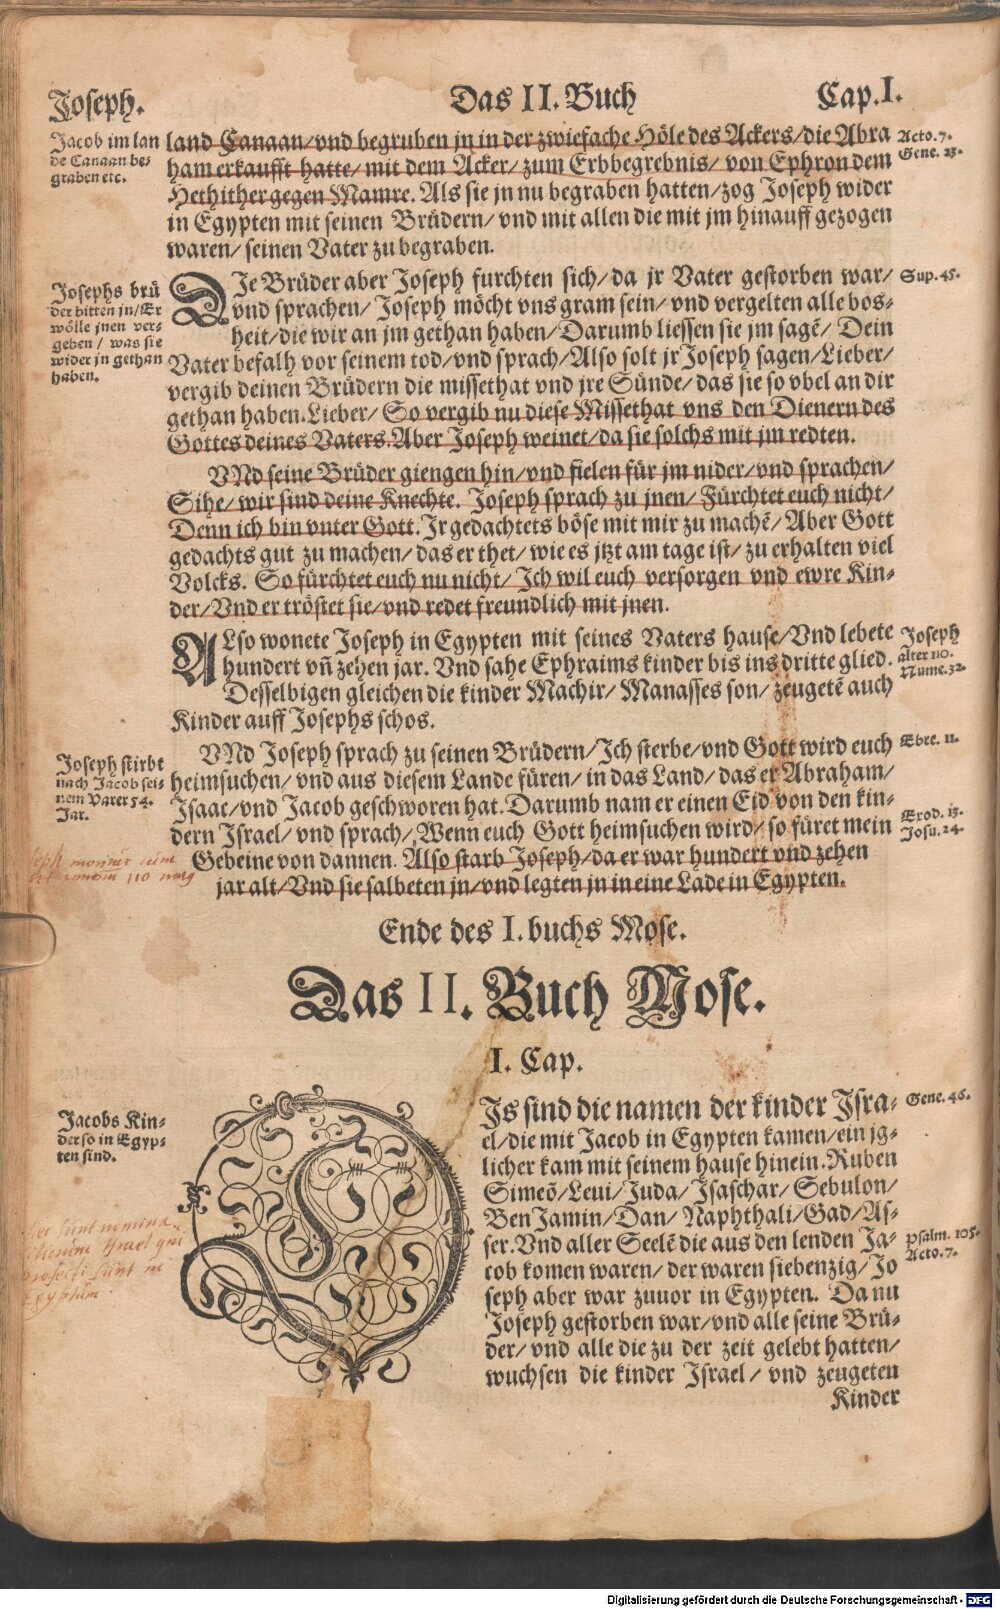 Joseph. Das II. Buch Cap. I.
Jacob im lan
de Canaan be=
graben etc.
land Canaan/vnd begruben jn in der zwiefache Höle des Ackers/die Abra
ham erkaufft hatte/mit dem Acker/zum Erbbegrebnis/von Ephron dem
Hethither gegen Mamre. Als sie jn nu begraben hatten/zog Joseph wider
in Egypten mit seinen Brüdern/vnd mit allen die mit jm hinauff gezogen
waren/seinen Vater zu begraben.
Acto. 7.
Gene. 23.
Josephs brü
der bitten jn/Er
wölle jnen ver=
geben/was sie
wider jn gethan
haben.
DIe Brüder aber Joseph furchten sich/da jr Vater gestorben war/
vnd sprachen/Joseph möcht vns gram sein/vnd vergelten alle bos=
heit/die wir an jm gethan haben/Darumb liessen sie jm sagē/Dein
Vater befalh vor seinem tod/vnd sprach/Also solt jr Joseph sagen/Lieber/
vergib deinen Brüdern die missethat vnd jre Sünde/das sie so vbel an dir
gethan haben. Lieber/So vergib nu diese Missethat vns den Dienern des
Gottes deines Vaters. Aber Joseph weinet/da sie solchs mit jm redten.
Sup. 45.
VNd seine Brüder giengen hin/vnd fielen für jm nider/vnd sprachen/
Sihe/wir sind deine Knechte. Joseph sprach zu jnen/Fürchtet euch nicht/
Denn ich bin vnter Gott. Jr gedachtets böse mit mir zu machē/Aber Gott
gedachts gut zu machen/das er thet/wie es jtzt am tage ist/zu erhalten viel
Volcks. So fürchtet euch nu nicht/Ich wil euch versorgen vnd ewre Kin=
der/Vnd er tröstet sie/vnd redet freundlich mit jnen.
ALso wonete Joseph in Egypten mit seines Vaters hause/Vnd lebete
hundert vñ zehen jar. Vnd sahe Ephraims kinder bis ins dritte glied.
Desselbigen gleichen die kinder Machir/Manasses son/zeugetē auch
Kinder auff Josephs schos.
Joseph
alter 110.
Nume. 32.
Joseph stirbt
nach Jacob sei=
nem Vater 54.
Jar.
VNd Joseph sprach zu seinen Brüdern/Ich sterbe/vnd Gott wird euch
heimsuchen/vnd aus diesem Lande füren/in das Land/das er Abraham/
Isaac/vnd Jacob geschworen hat. Darumb nam er einen Eid von den kin=
dern Israel/vnd sprach/Wenn euch Gott heimsuchen wird/so füret mein
Gebeine von dannen. Also starb Joseph/da er war hundert vnd zehen
jar alt/Vnd sie salbeten jn/vnd legten jn in eine Lade in Egypten.
Ebre. 11.
Exod. 13.
Josu. 24.
moritur cum
110
Ende des I. buchs Mose.
Das II. Buch Mose.
I. Cap.
Jacobs Kin=
der so in Egyp=
ten sind.
DIs sind die namen der kinder Isra=
el/die mit Jacob in Egypten kamen/ein jg=
licher kam mit seinem hause hinein. Ruben
Simeō/Leui/Juda/Isaschar/Sebulon/
BenJamin/Dan/Naphthali/Gad/As=
ser. Vnd aller Seelē die aus den lenden Ja=
cob komen waren/der waren siebenzig/Jo
seph aber war zuuor in Egypten. Da nu
Joseph gestorben war/vnd alle seine Brü=
der/vnd alle die zu der zeit gelebt hatten/
wuchsen die kinder Israel/vnd zeugeten
Kinder
Gene. 46.
Psalm. 105.
Acto. 7.
sunt nomina
Israel qui
profecti sunt in
Egyptum
Digitalisierung gefördert durch die Deutsche Forschungsgemeinschaft - DFG